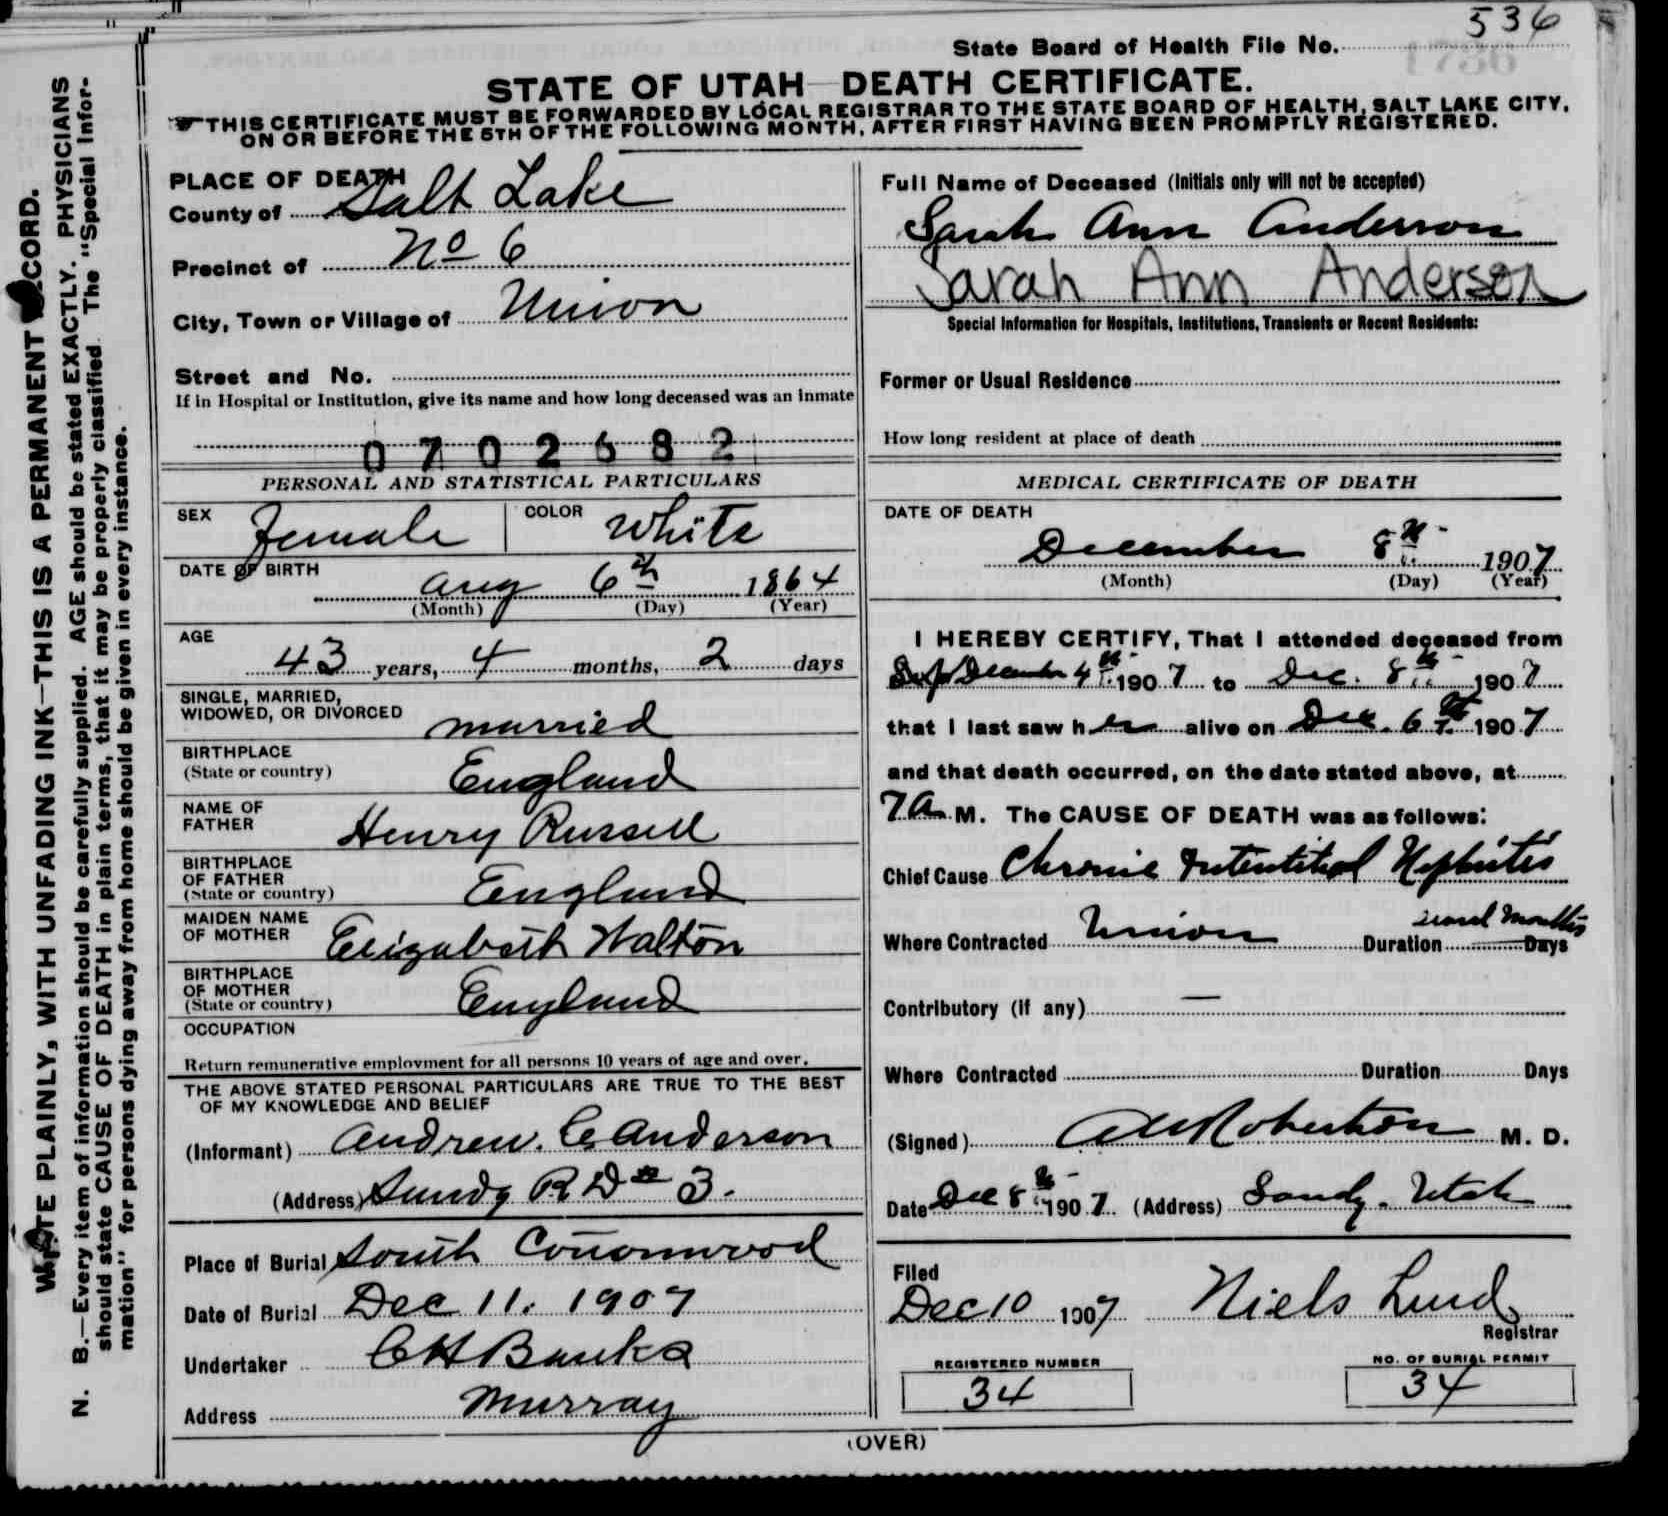 536
State Board of Health File No.
STATE OF UTAH—DEATH CERTIFICATE.
THIS CERTIFICATE MUST BE FORWARDED BY LOCAL REGISTRAR TO THE STATE BOARD OF HEALTH, SALT LAKE CITY,
ON OR BEFORE THE 5TH OF THE FOLLOWING MONTH, AFTER FIRST HAVING BEEN PROMPTLY REGISTERED.
PLAINLY, WITH UNFADING INK—THIS IS A PERMANENT
N. B.—Every item of information should be carefully supplied. AGE should be stated EXACTLY. PHYSICIANS
should state CAUSE OF DEATH in plain terms, that it may be properly classified. The "Special Infor-
mation" for persons dying away from home should be given in every instance.
PLACE OF DEATH
County of Salt Lake
Precinct of No 6
City, Town or Village of Union
Street and No.
If in Hospital or Institution, give its name and how long deceased was an inmate
0702682
PERSONAL AND STATISTICAL PARTICULARS
SEX Female COLOR White
DATE OF BIRTH
Aug 6th 1864
(Month) (Day) (Year)
AGE
43 years, 4 months, 2 days
SINGLE, MARRIED,
WIDOWED, OR DIVORCED married
BIRTHPLACE
(State or country) England
NAME OF
FATHER Henry Russell
BIRTHPLACE
OF FATHER
(State or country) England
MAIDEN NAME
OF MOTHER Elizabeth Walton
BIRTHPLACE
OF MOTHER
(State or country) England
OCCUPATION
Return remunerative employment for all persons 10 years of age and over.
THE ABOVE STATED PERSONAL PARTICULARS ARE TRUE TO THE BEST
OF MY KNOWLEDGE AND BELIEF
(Informant) Andrew. C Anderson
(Address) Sandy R D No 3.
Place of Burial South Cottonwood
Date of Burial Dec 11. 1907
Undertaker C H Banks
Address Murray
Full Name of Deceased (Initials only will not be accepted)
Sarah Ann Anderson
Sarah Ann Anderson
Special Information for Hospitals, Institutions, Transients or Recent Residents:
Former or Usual Residence
How long resident at place of death
MEDICAL CERTIFICATE OF DEATH
DATE OF DEATH
December 8th 1907
(Month) (Day) (Year)
I HEREBY CERTIFY, That I attended deceased from
December 4th 1907 to Dec. 8th 1907
that I last saw her alive on Dec. 6th 1907
and that death occurred, on the date stated above, at
7 A M. The CAUSE OF DEATH was as follows:
Chief Cause Chronic Intentitial Nephritis
several months
Where Contracted Union Duration Days
Contributory (if any) —
Where Contracted Duration Days
(Signed) Robertson M. D.
Date Dec 8th 1907 (Address) Sandy. Utah
Filed
Dec 10 1907 Niels Lind
Registrar
REGISTERED NUMBER NO. OF BURIAL PERMIT
34 34
(OVER)